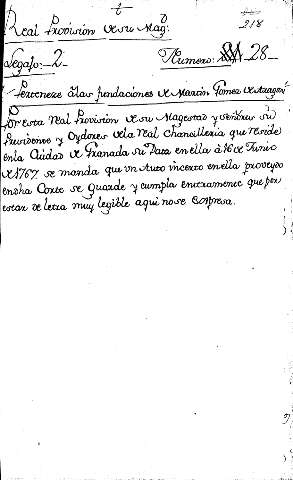 t
218
Real Provision de su Mag.d
Legafo: 2
Numero: 28
Perteneze a las fundaciones de Martin Gomez de Aragon
Por esta Real Provision de su Magestad y señores su
Presidente y Oydores de la Real Chanzilleria que reside
en la Ciudad de Granada su Data en ella a 16 de Junio
de 1767 se manda que un Auto incerto en ella proveydo
en dha Corte se guarde y cumpla enteramente que por
estar de letra muy legible aqui no se Expresa.